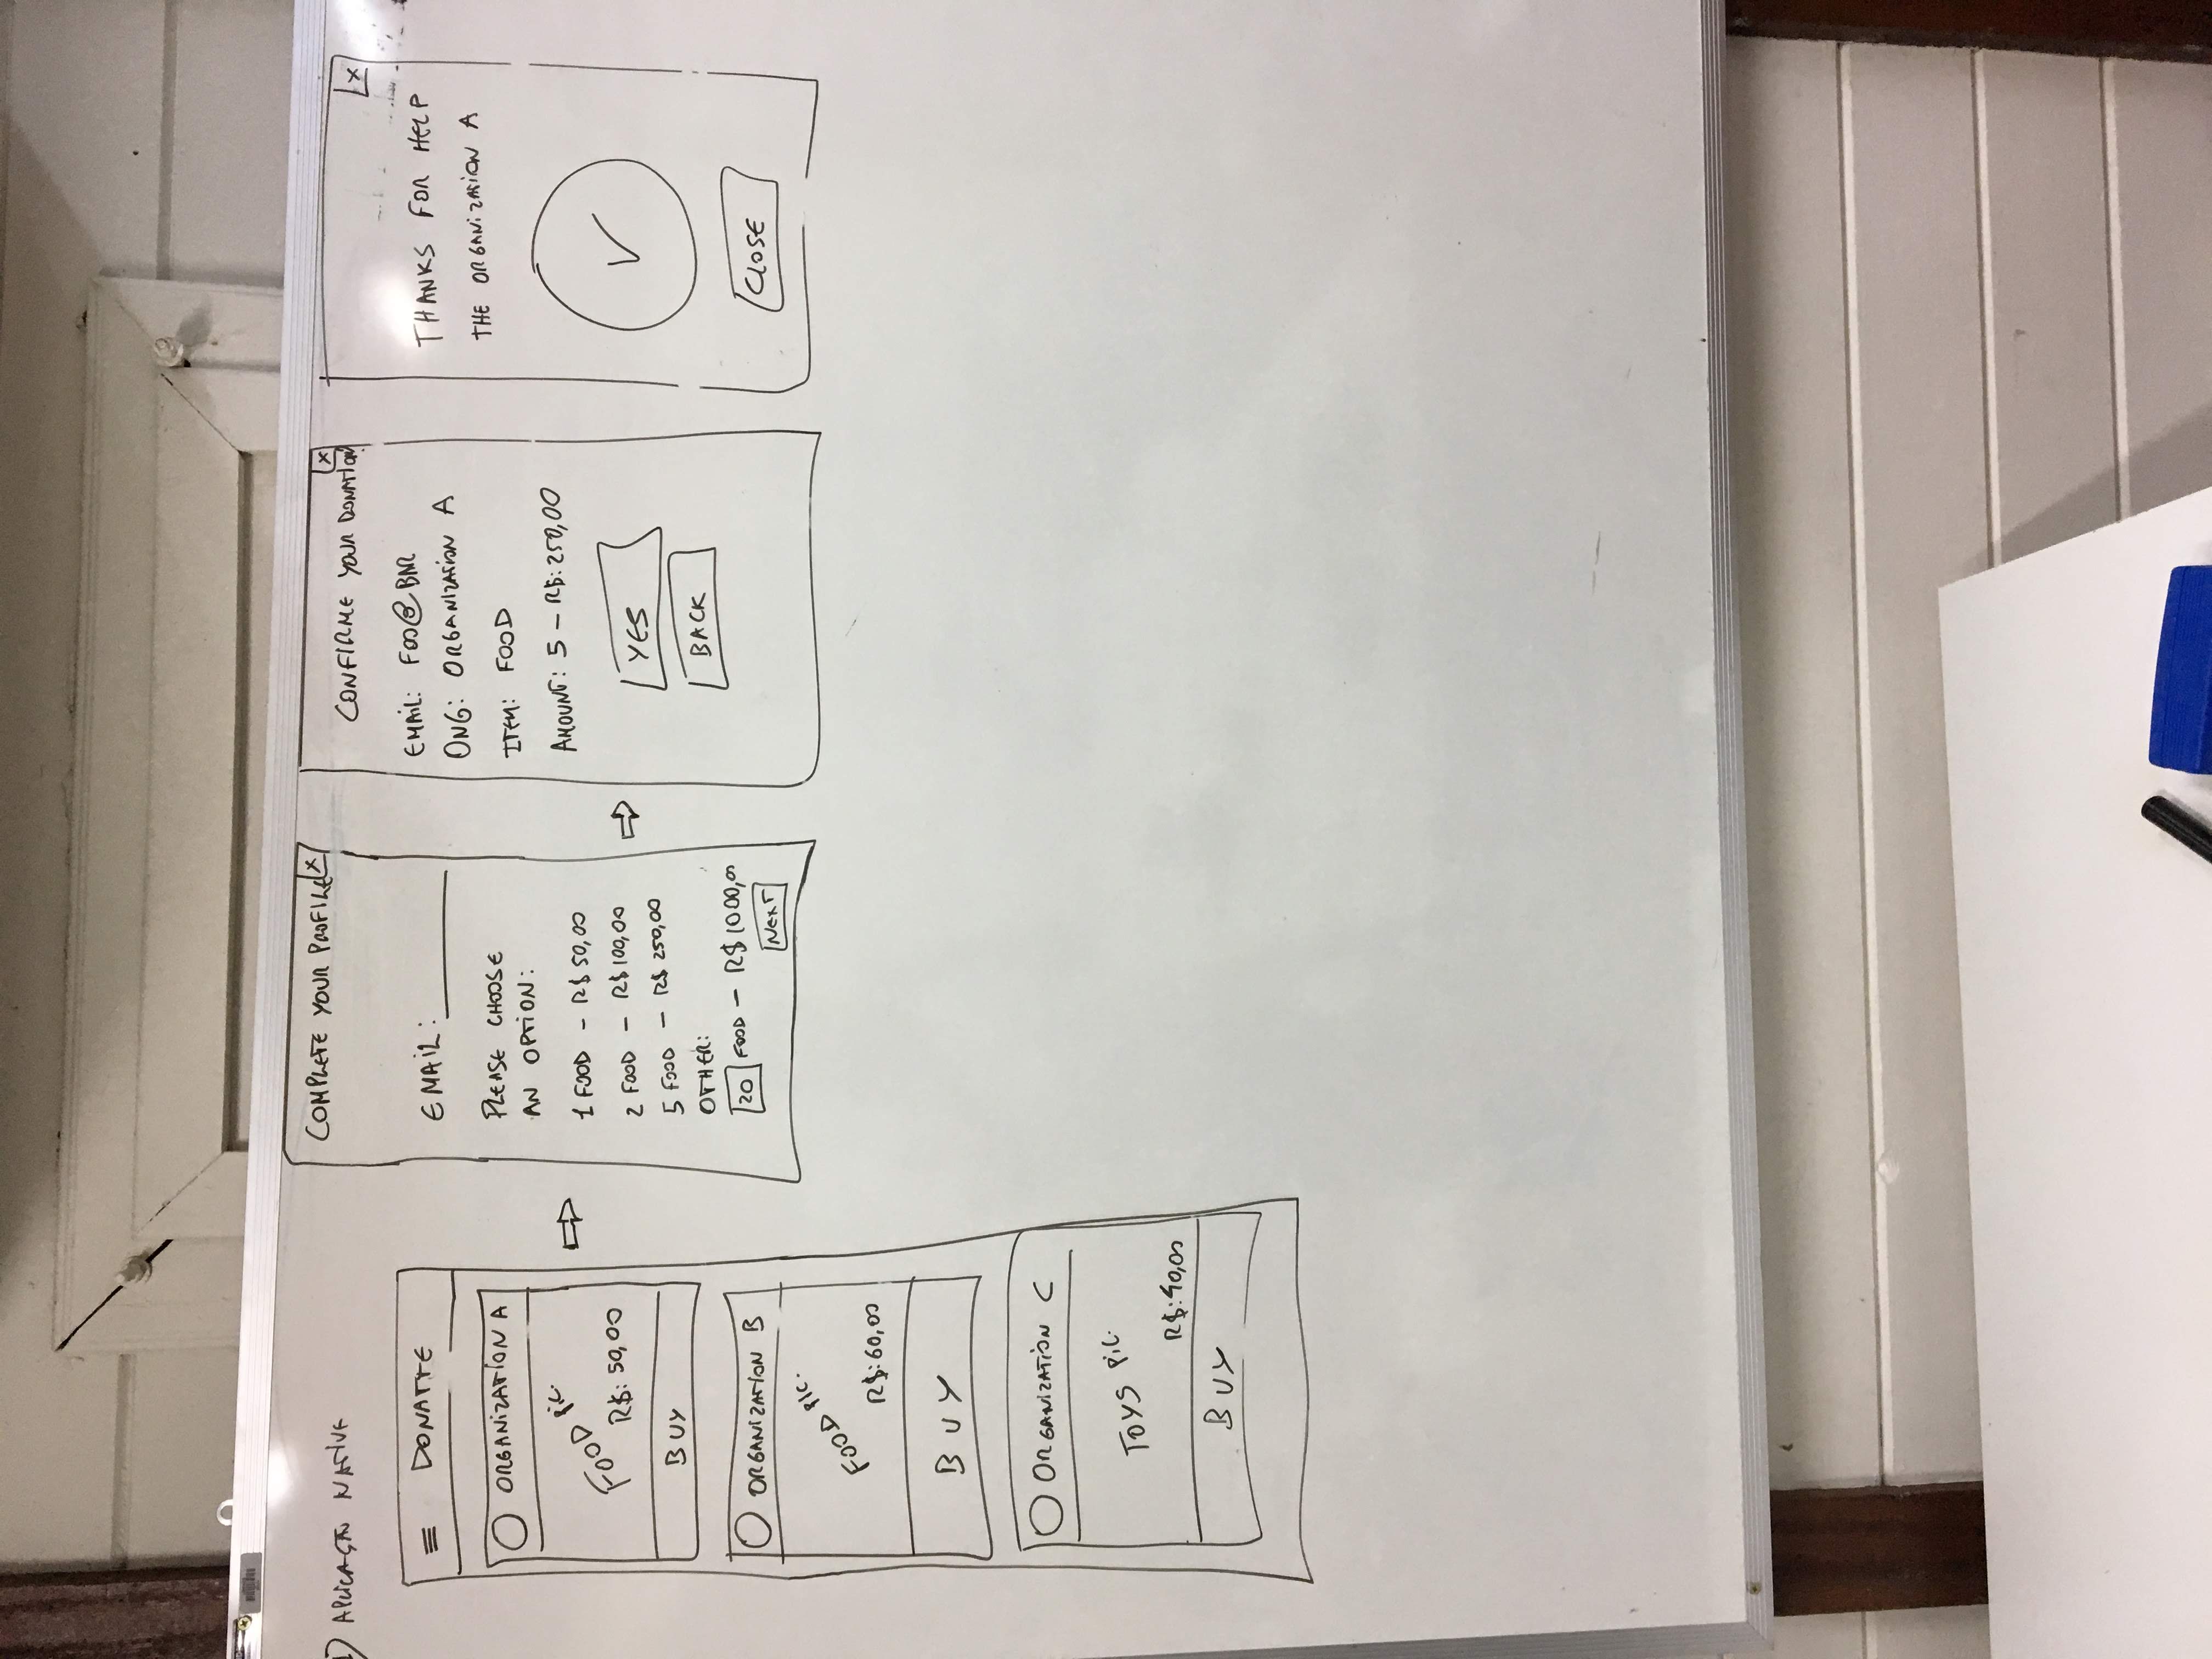 1) APLICAÇÃO NATIVE
DONATTE
ORGANIZATION A
FOOD PIC.
R$: 50,00
BUY
ORGANIZATION B
FOOD PIC.
R$: 60,00
BUY
ORGANIZATION C
TOYS PIC.
R$: 40,00
BUY
COMPLETE YOUR PROFILE X
EMAIL:
PLEASE CHOOSE
AN OPTION:
1 FOOD - R$ 50,00
2 FOOD - R$ 100,00
5 FOOD - R$ 250,00
OTHER:
20 FOOD - R$ 1000,00
NEXT
X
CONFIRME YOUR DONATION
EMAIL: FOO@BAR
ONG: ORGANIZATION A
ITEM: FOOD
AMOUNT: 5 - R$: 250,00
YES
BACK
X
THANKS FOR HELP
THE ORGANIZATION A
CLOSE